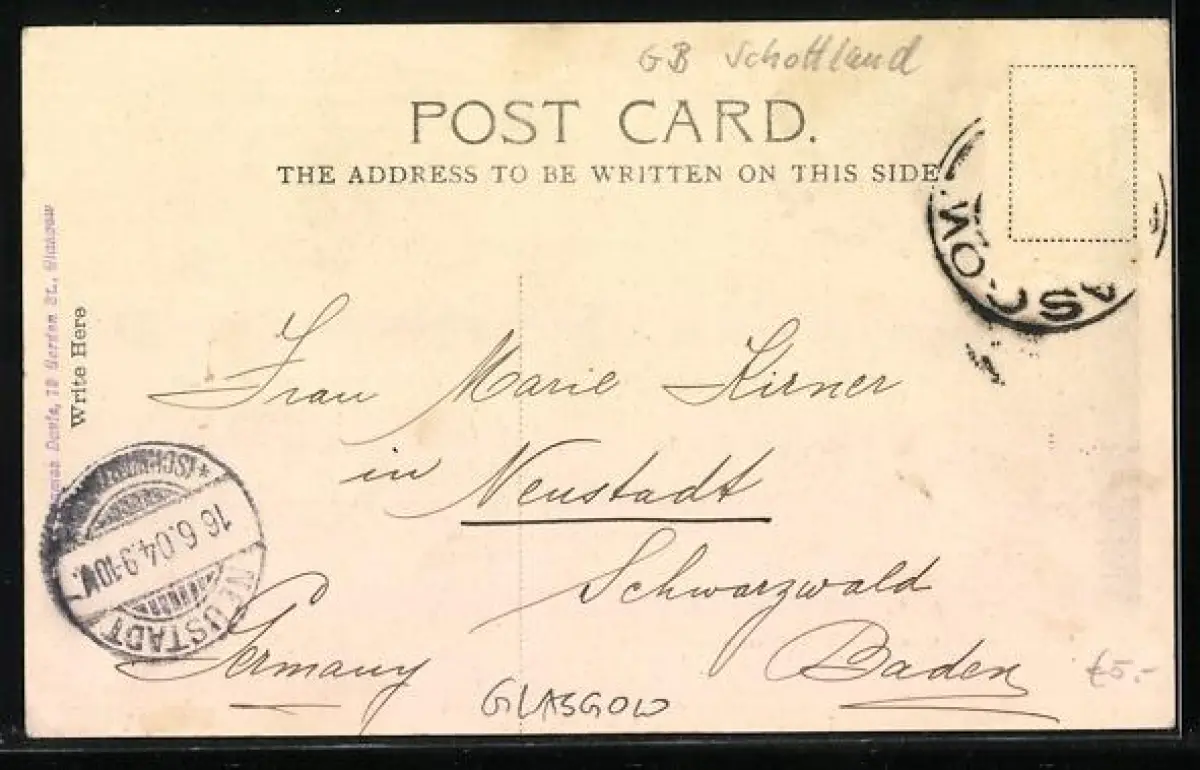 GB Schottland
POST CARD.
THE ADDRESS TO BE WRITTEN ON THIS SIDE
Write Here
Davis, 10 Gordon St., Glasgow
Frau Marie Kirner
in Neustadt
Schwarzwald
Baden
Germany
GLASGOW
£5.-
16.6.04.9-10V.
NEUSTADT